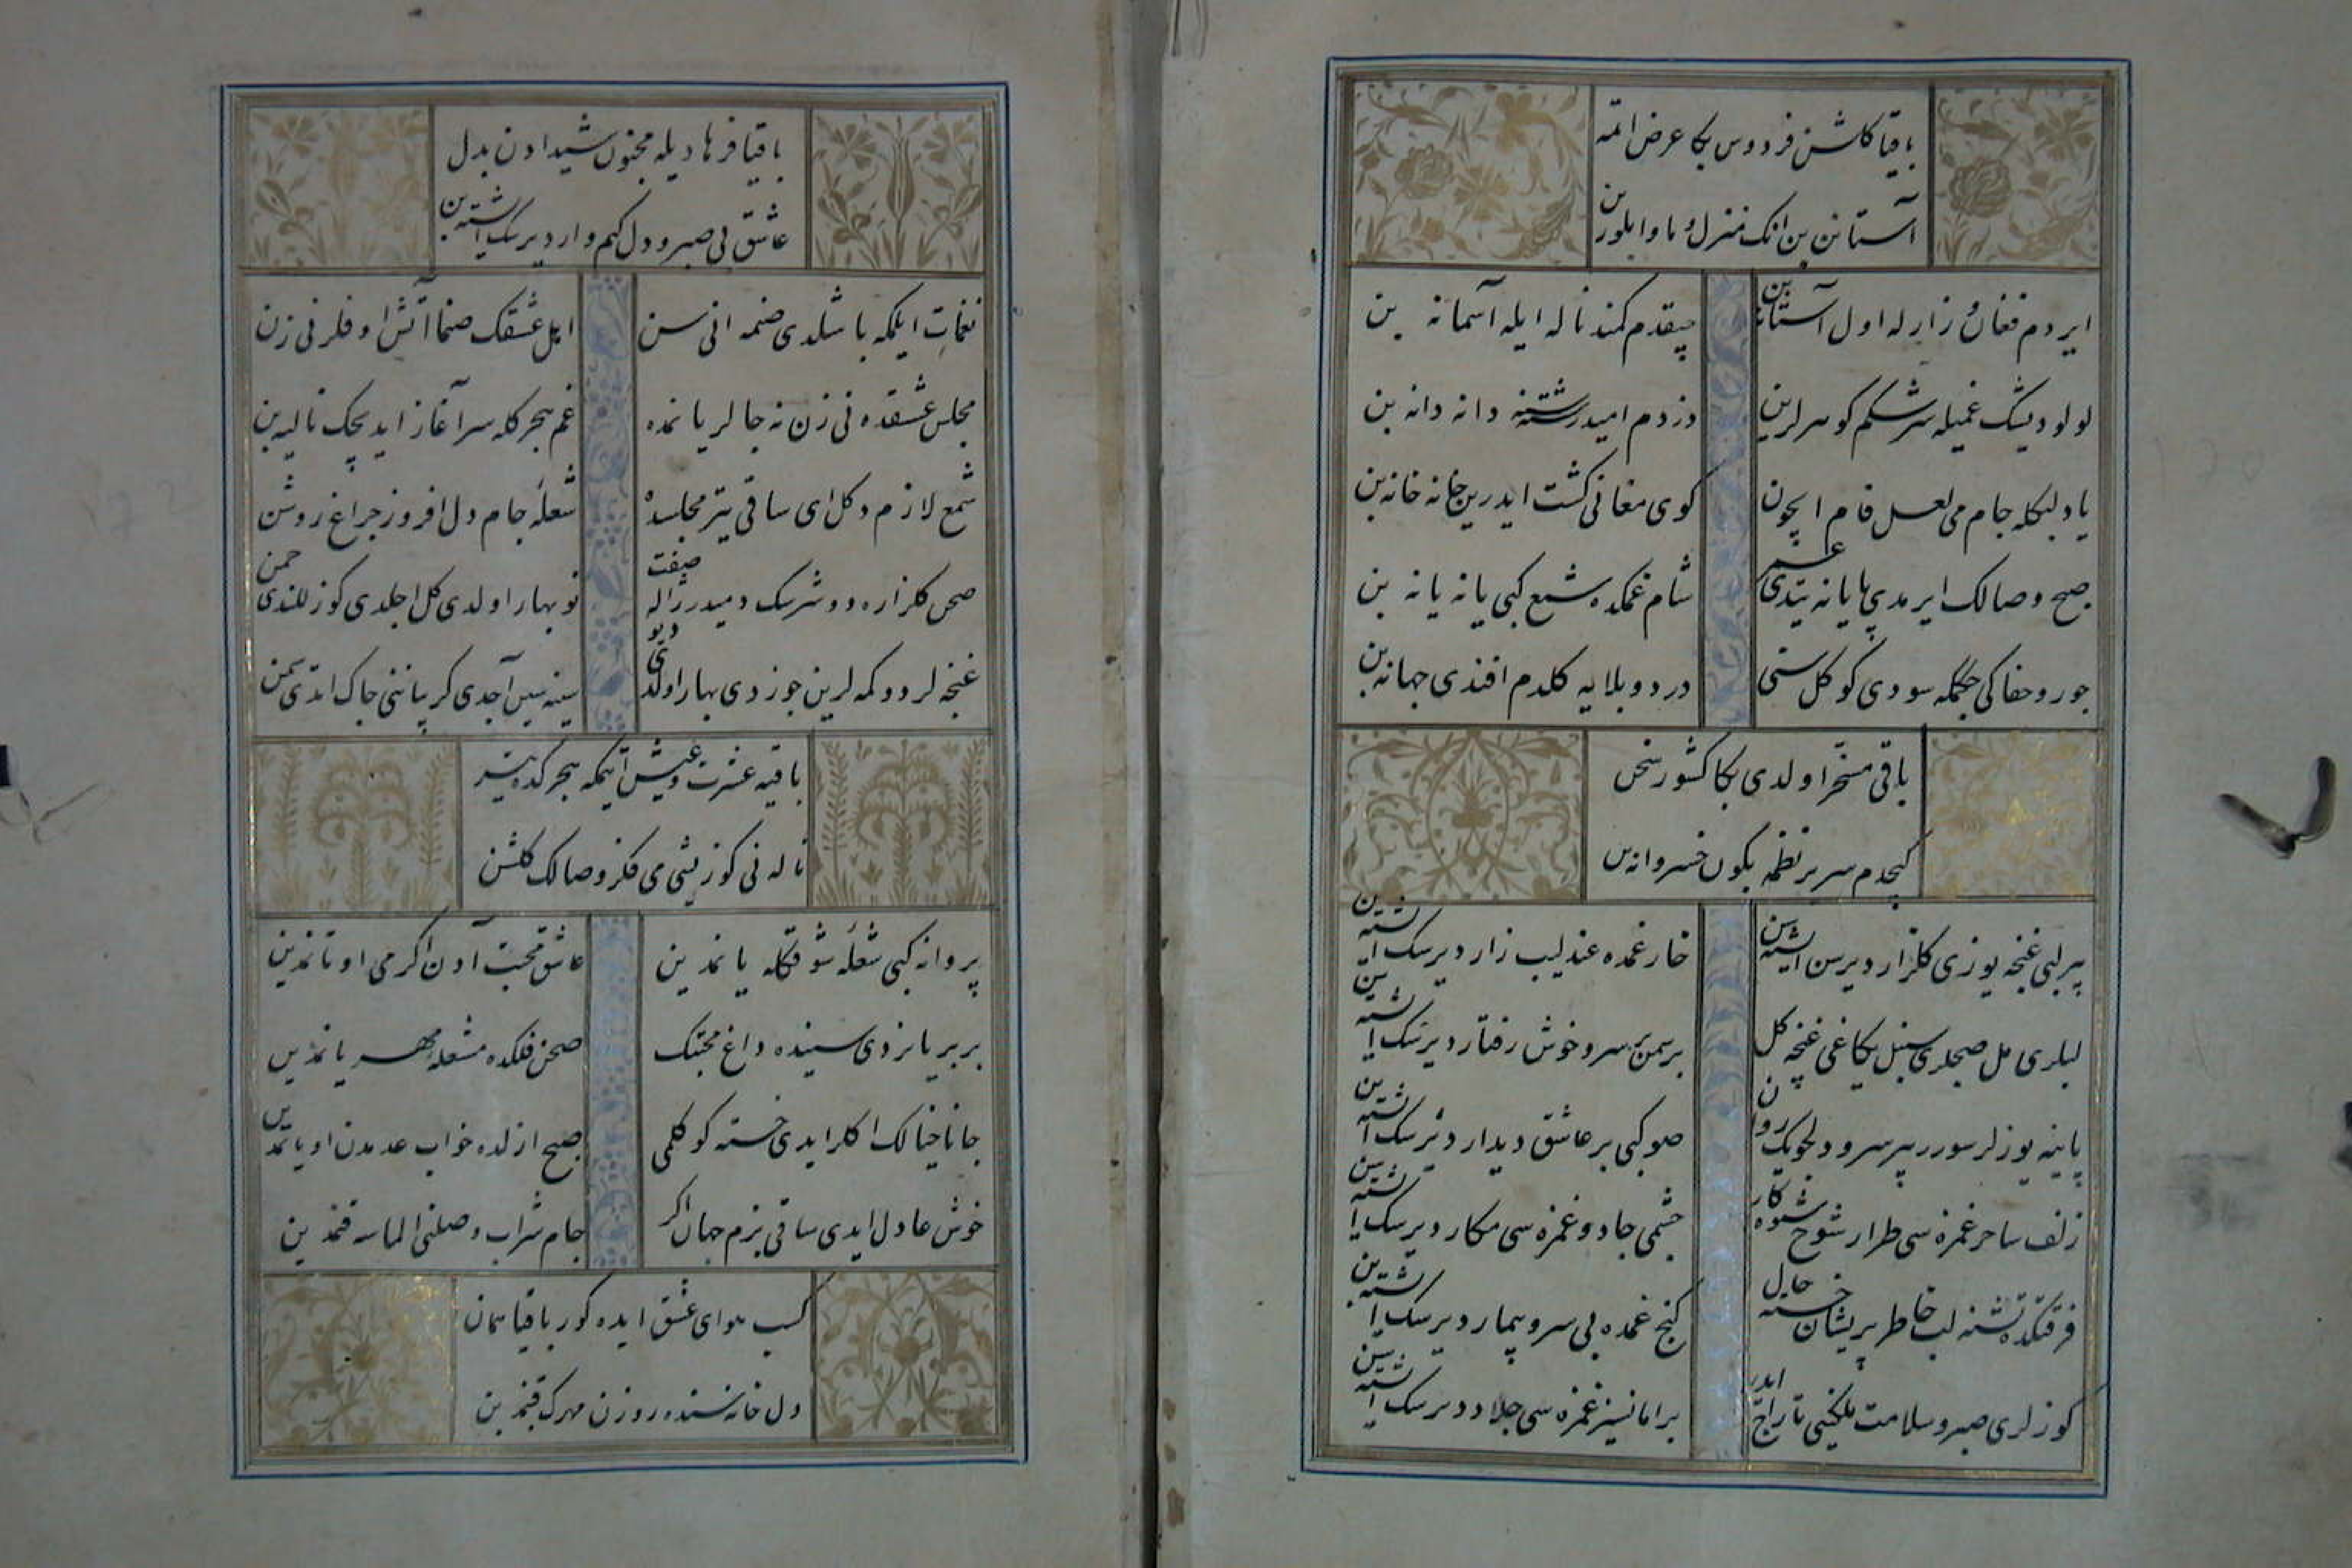 باقیا کلشن فردوس بکا عرض ایتمه
آستانن بن انک منزل و ماوا بلورن
ایردم فغان و زارله اول آستانه بن
چیقدم کمند ناله ایله آسمانه بن
لولو دیشک غمیله سرشکم کوهرلرین
دزدم امید رشتنه دانه دانه بن
یاد لبکله جام می لعل فام ایچون
کوی مغانی کشت ایدرین خانه خانه بن
صبح وصالک ایرمدی پایانه یتدی عمر
شام غمکده شمع کبی یانه یانه بن
جور و جفاکی چکمکه سودی کوکل سنی
درد و بلایه کلدم افندی جهانه بن
باقی مسخر اولدی بکا کشور سخن
کچدم سریر نظمه بکون خسروانه بن
بر لبی غنچه یوزی کلزار دیرسن اشته سن
خار غمده عندلیب زار دیرسک اشته بن
لبلری مل صچلری سنبل یکاغی غنچه کل
بر سمن بر سرو خوش رفتار دیرسک اشته سن
پاینه یوزلر سورر بر سرو دلجویک روان
صو کبی بر عاشق دیدار دیرسک اشته بن
زلف ساحر غمزه سی طرار شوخ شیوه کار
چشمی جادو غمزه سی مکار دیرسک اشته سن
فرقتکده تشنه لب خاطر پریشان خسته حال
کنج غمده بی سر و بیمار دیرسک اشته بن
کوزلری صبر و سلامت ملکینی تاراج ایدر
بر امانسیز غمزه سی جلاد دیرسک اشته سن
باقیا فرهاد یله مجنون شیدادن بدل
عاشق بی صبر و دل کیم وار دیرسک اشته بن
نغمات ایلمکه باشلدی ضمه انی سن
ایل عشقک صنما آتش اوفلر نی زن
مجلس عشقده نی زن نه جالر یاننده
غم هجرکله سرآغاز ایدیچک نالیه بن
شمع لازم دکل ای ساقی یتر مجلسده
شعله جام دل افروز چراغ روشن
صحن کلزاره دوشرسک دمیدر ژاله صفت
نوبهار اولدی کل اچلدی کوزللندی چمن
غنچه لر دوکمه لرین چوزدی بهار اولدی دیو
سینه سین آچدی کریبانی چاک ایتدی سمن
باقیه عشرت و عیش ایتمکه هجرکده یتر
ناله نی کوز یشی می فکر وصالک کلشن
پروانه کبی شعله شوقکله یانمدین
عاشق محبت آدن اکرمی اوتانمدین
بر بر یانردی سینده داغ محبتک
صحن فلکده مشعله مهر یانمدین
جانا خیالک اکلر ایدی خسته کوکلمی
صبح ازلده خواب عدمدن اویانمدین
خوش عادل ایدی ساقی بزم جهان اکر
جام شراب وصلنی الماسه قنمدین
کسب هوای عشق ایده کور باقیا همان
دل خانه سنده روزن مهرک قپنمدین